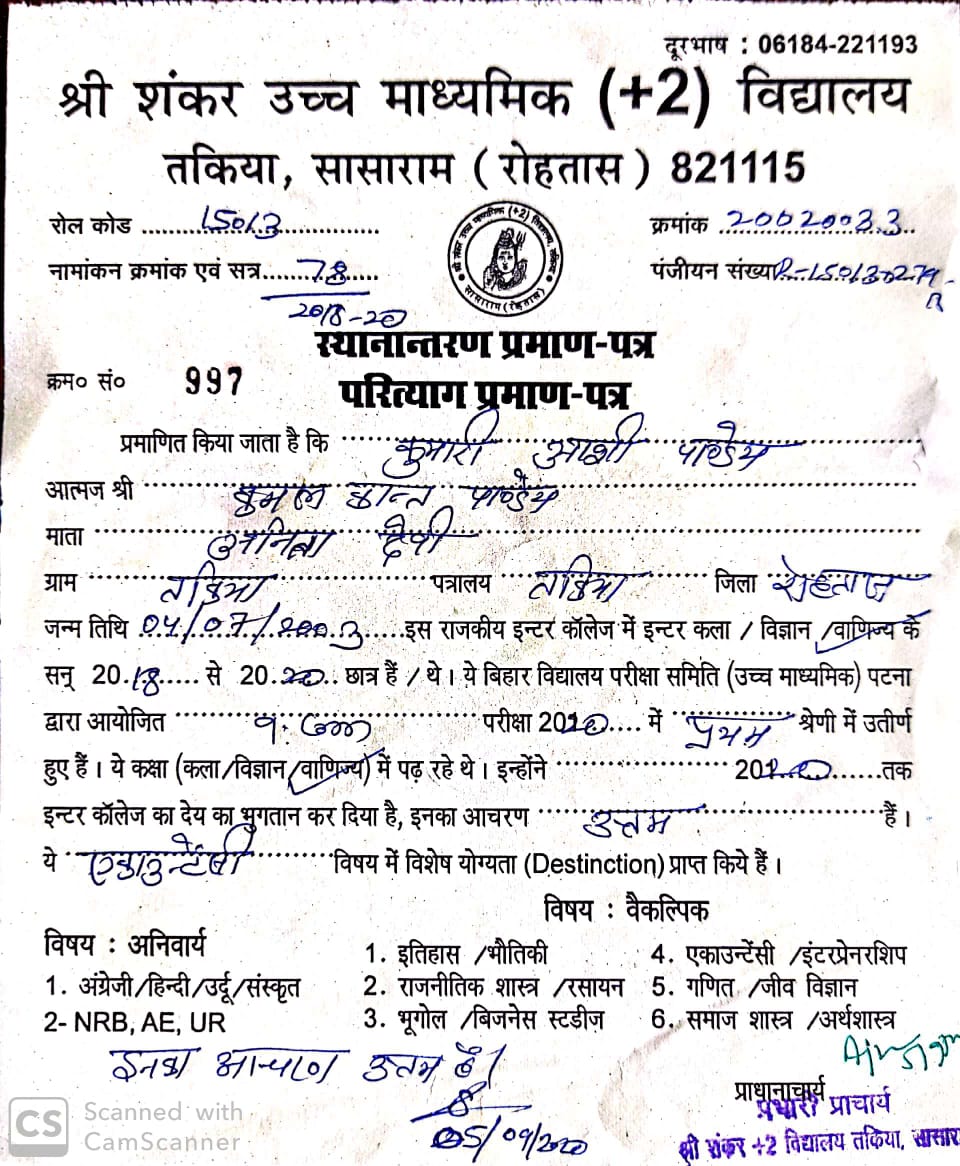 दूरभाष : 06184-221193
श्री शंकर उच्च माध्यमिक (+2) विद्यालय
तकिया, सासाराम ( रोहतास ) 821115
रोल कोड 15013
क्रमांक 20020033
नामांकन क्रमांक एवं सत्र 78
2018-20
पंजीयन संख्या R-150130279-
स्थानान्तरण प्रमाण-पत्र
क्रम० सं० 997
परित्याग प्रमाण-पत्र
प्रमाणित किया जाता है कि कुमारी आशी पाण्डेय
आत्मज श्री कमल कान्त पाण्डेय
माता अनिता देवी
ग्राम तकिया पत्रालय तकिया जिला रोहतास
जन्म तिथि 04/07/2003 इस राजकीय इन्टर कॉलेज में इन्टर कला / विज्ञान /वाणिज्य के
सन् 2018 से 2020 छात्र हैं / थे। ये बिहार विद्यालय परीक्षा समिति (उच्च माध्यमिक) पटना
द्वारा आयोजित परीक्षा 2020 में प्रथम श्रेणी में उतीर्ण
हुए हैं। ये कक्षा (कला/विज्ञान/वाणिज्य) में पढ़ रहे थे। इन्होंने 2020 तक
इन्टर कॉलेज का देय का भुगतान कर दिया है, इनका आचरण उत्तम हैं।
ये एकाउन्टेंसी विषय में विशेष योग्यता (Destinction) प्राप्त किये हैं।
विषय : वैकल्पिक
विषय : अनिवार्य
1. इतिहास /भौतिकी 4. एकाउन्टेंसी /इंटरप्रेनरशिप
1. अंग्रेजी/हिन्दी/उर्दू/संस्कृत 2. राजनीतिक शास्त्र /रसायन 5. गणित /जीव विज्ञान
2- NRB, AE, UR 3. भूगोल /बिजनेस स्टडीज़ 6. समाज शास्त्र /अर्थशास्त्र
इनका आचरण उत्तम है।
प्राधानाचार्य
05/09/2020
प्रभारी प्राचार्य
श्री शंकर +2 विद्यालय तकिया, सासारा
CS Scanned with
CamScanner